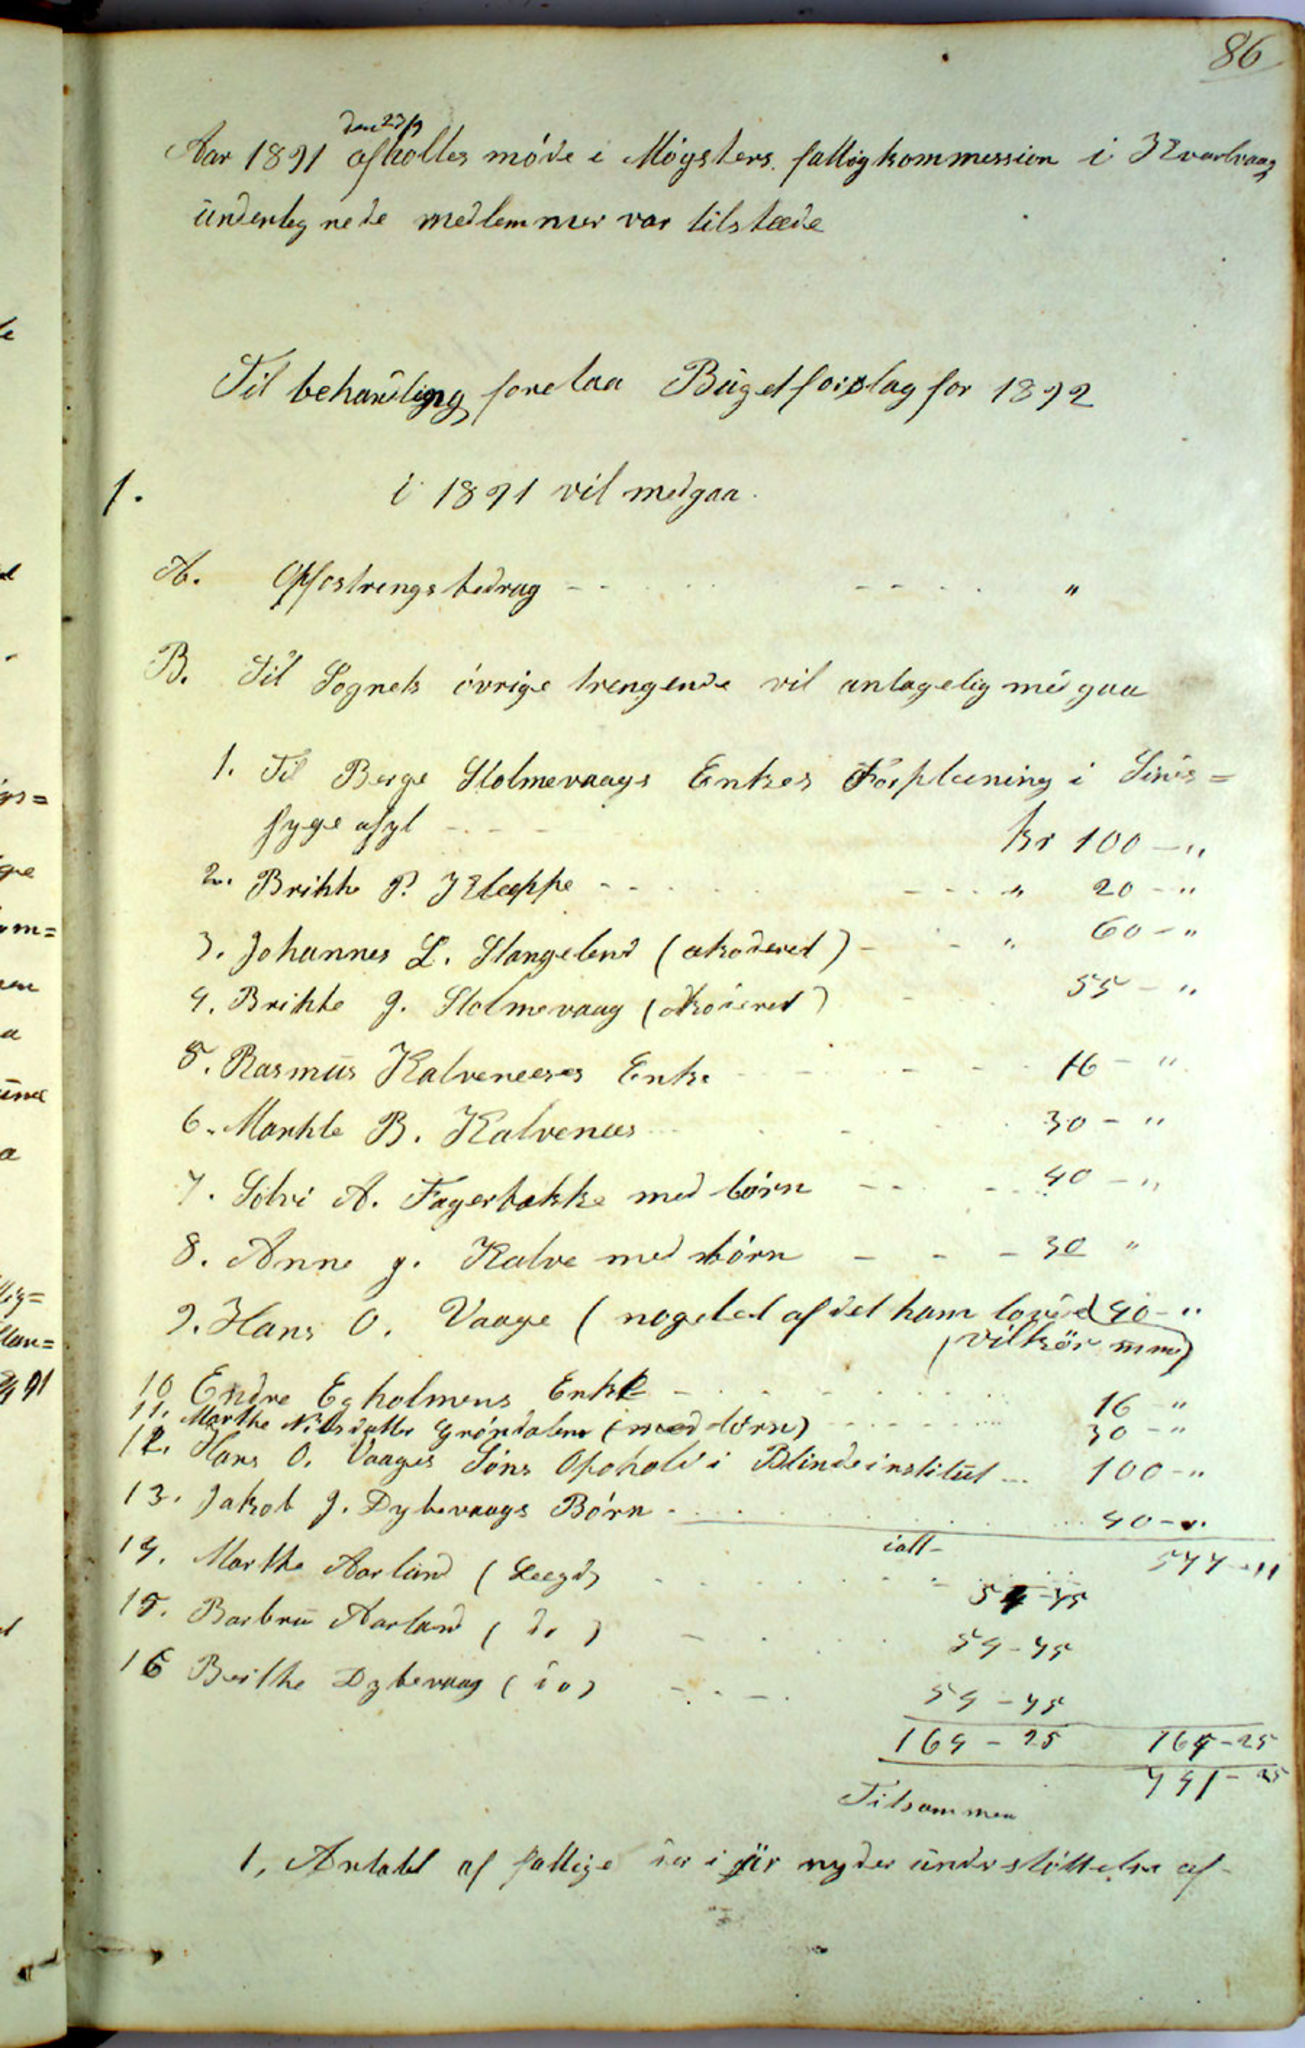 86
den 23/9
Aar 1891 afholtes möde i Möysters fattigkommession i Kvarlvaag
underteg nede medlemmer var tilstæde
Til behandling forelaa Bùgetforslag for 1892
1. i 1891 vil medgaa.
A. Opfostrengsbedrag - - - - - "
B. Til Sognets övrige trengende vil antagelig medgaa
1. Til Berge Stolmevaags Enkes Forpleening i Sinds=
syge asyl - - - kr 100 - "
2. Brithe P. Kleppe - - - - - " 20 - "
3. Johannes L. Stangeland (akoderet) - - " 60 - "
4. Brithe J. Stolmevaag (akoderet) - 55 - "
5. Rasmus Kalveneeses Enke - - - - 16 - "
6. Marthe B. Kalvenees - - - 30 - "
7. Sölvi A. Fagerbakke med börn - - - - 40 - "
8. Anne J. Kalve med börn - - - 30 "
9. Hans O. Vaage (nogeled af det ham lovede 40 - "
(vilkör mm)
10 Endre Egholmens Enke - - - - 16 - "
11. Marthe Nilsdatter Gröndalen (med börn) - - - - 30 - "
12. Hans O. Vaages Söns Ophold i Blindeinstitut - - 100 - "
13. Jakob J. Dybevaags Börn - - - - 40 - "
ialt - 577 - "
14. Marthe Aarland (Leegd) - - - - 54 - 75
15. Barbru Aarland (do) - - - 54 - 75
16 Berthe Dybevaag (do) - - - 54 - 75
164 - 25 164 - 25
Tilsammen 741 - 25
1, Antahl af fattige der i år nyder understöttelse af